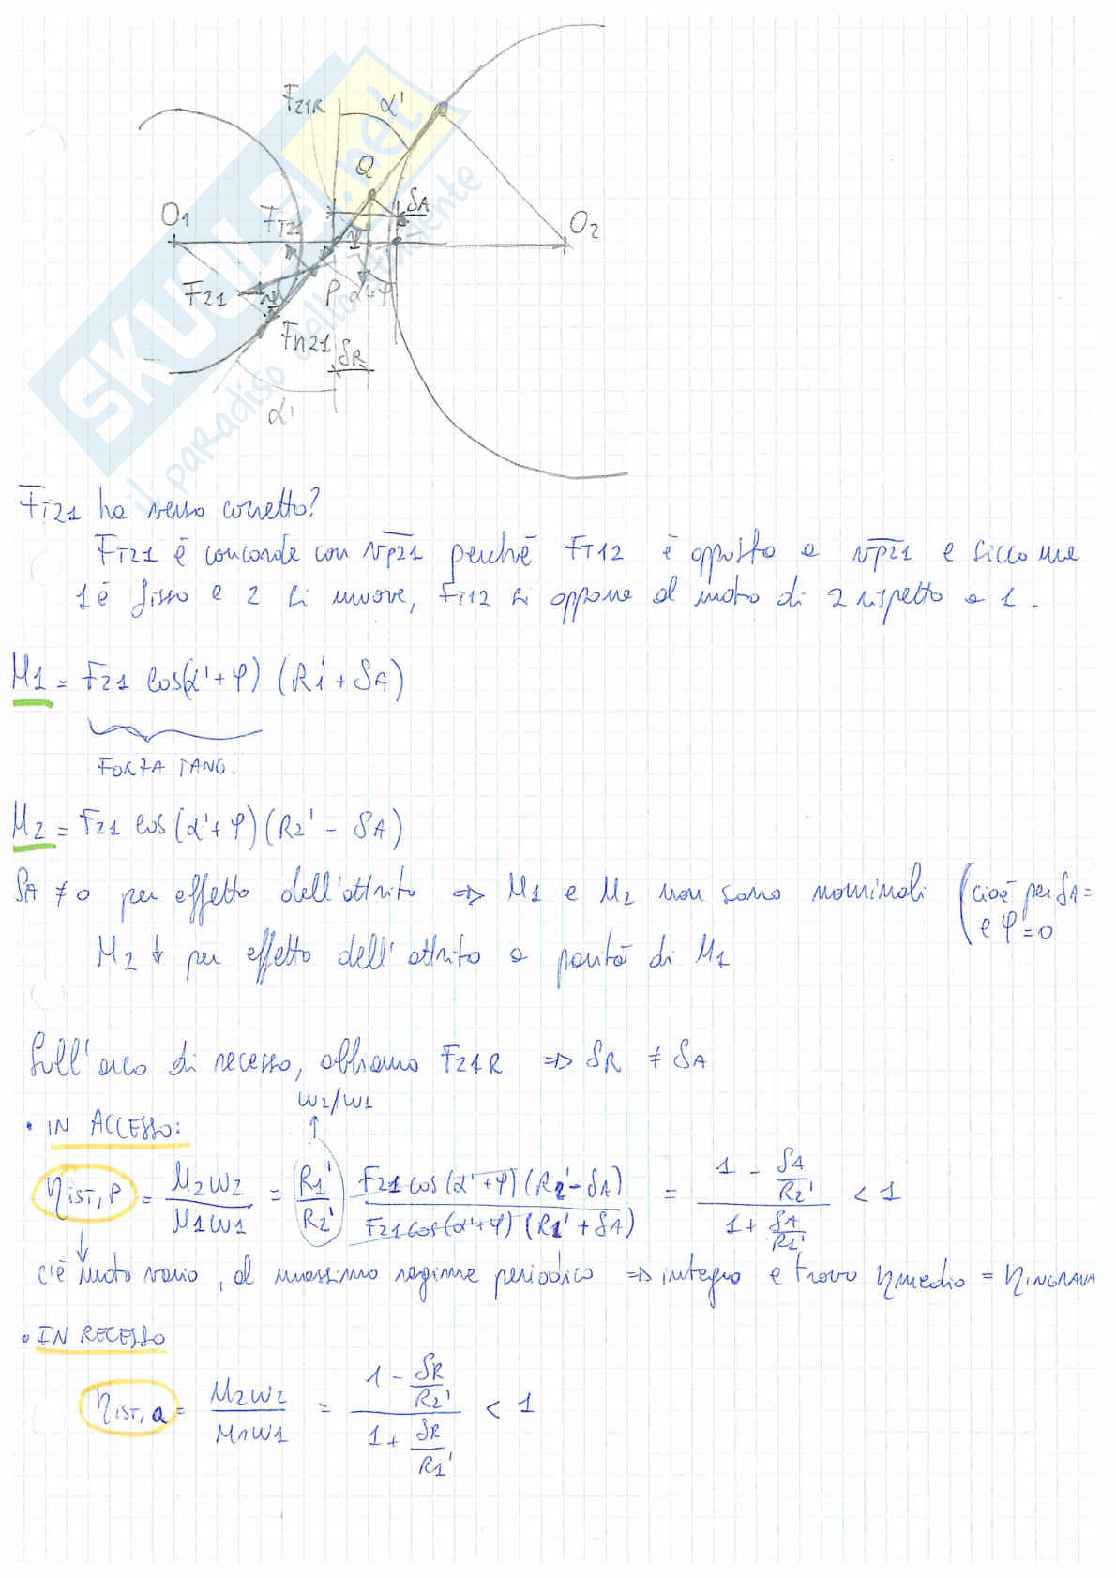 F21R
α'
Q
δA
O1
FT21
O2
F21
P
α'+φ
Fn21
δR
α'
SKUOLA.net
il paradiso dello studente
FT21 ha verso corretto?
FT21 è concorde con vp21 perchè FT12 è opposto a vp21 e siccome
1 è fisso e 2 si muove, FT12 si oppone al moto di 2 rispetto a 1.
M1 = F21 cos(α'+φ) (R1'+δA)
FORZA TANG.
M2 = F21 cos(α'+φ)(R2' - δA)
δA ≠ 0 per effetto dell'attrito => M1 e M2 non sono nominali (cioè per δA=
e φ=0
M2 ↓ per effetto dell'attrito a parità di M1
Sull'arco di recesso, abbiamo F21R => δR ≠ δA
ω2/ω1
• IN ACCESSO:
ηIST,P = M2ω2/M1ω1 = R1'/R2' F21cos(α'+φ)(R2'-δA)/F21cos(α'+φ)(R1'+δA) = 1 - δA/R2' / 1 + δA/R1' < 1
c'è moto vario, al massimo regime periodico => integro e trovo ηmedio = ηINGRANA
• IN RECESSO
ηIST,Q = M2ω2/M1ω1 = 1 - δR/R2' / 1 + δR/R1' < 1